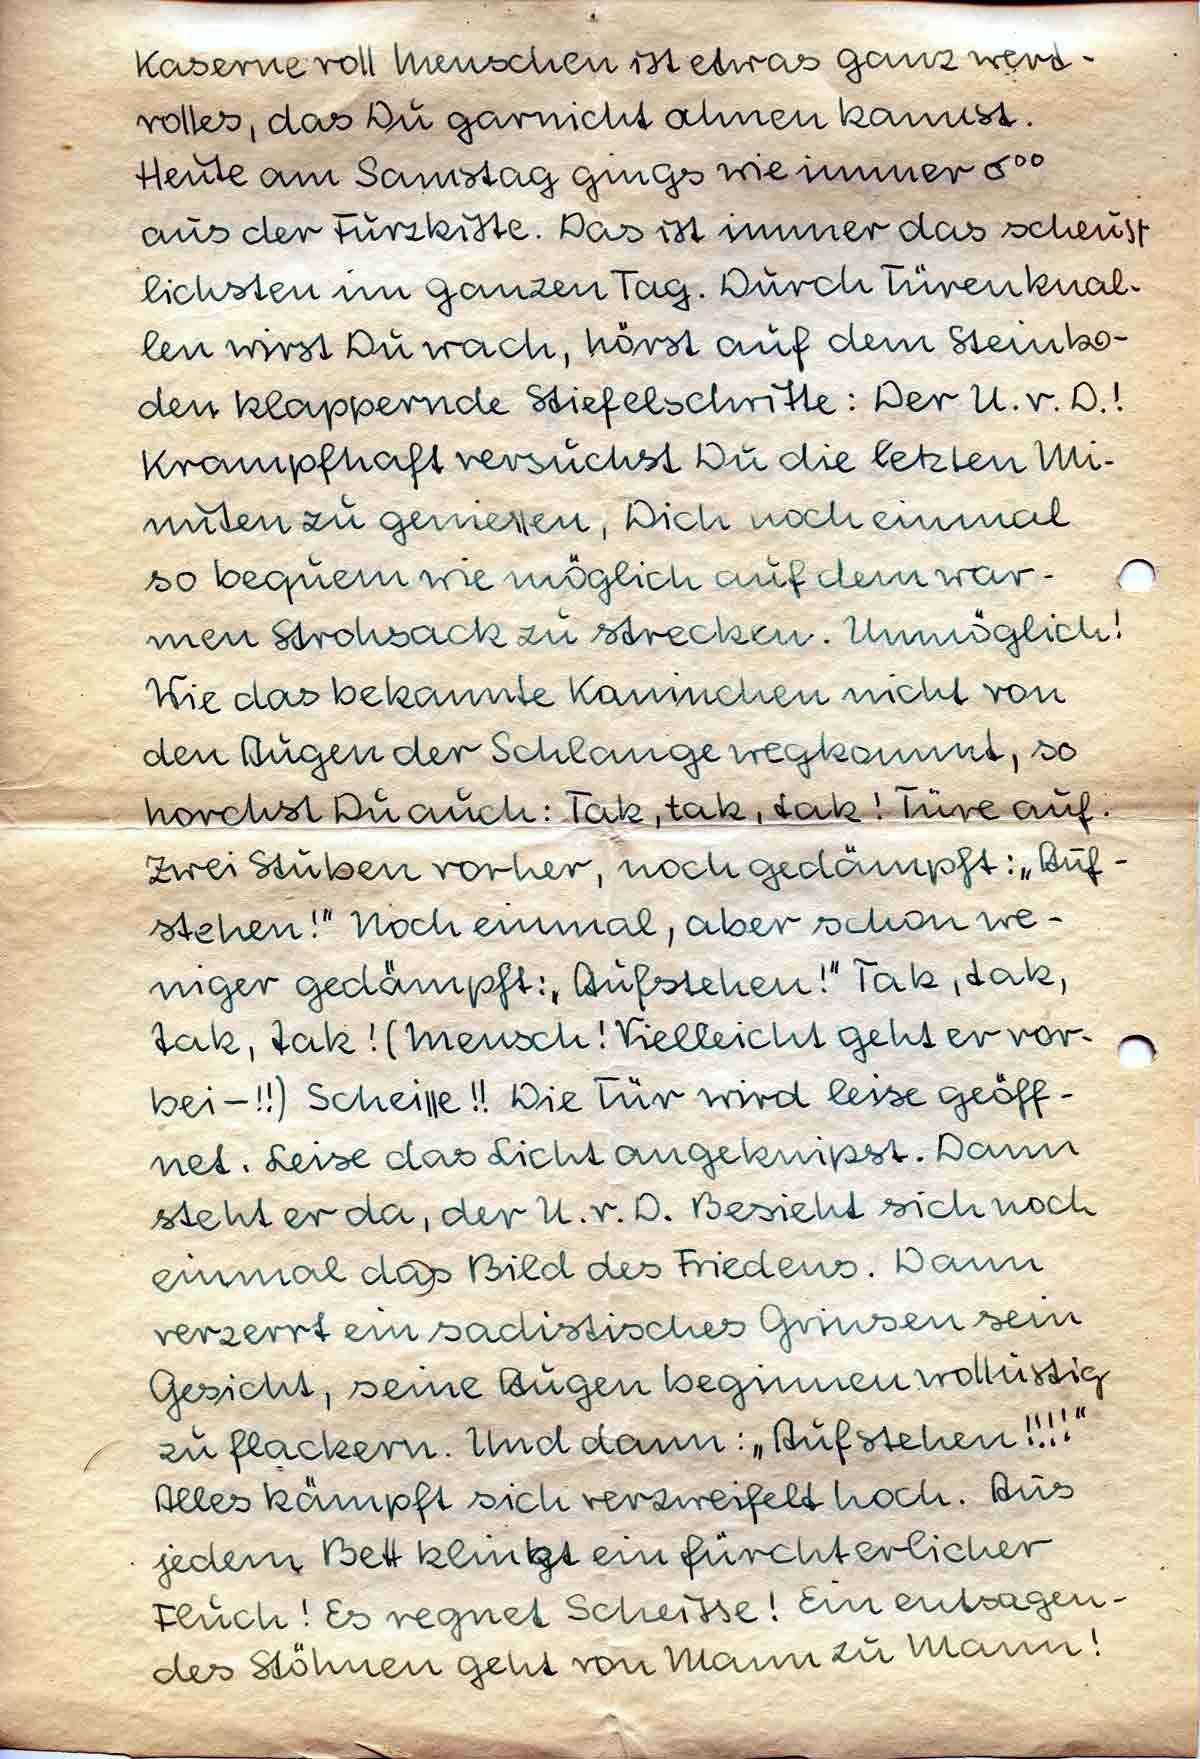 Kaserne voll Menschen ist etwas ganz wert-
volles, das Du garnicht ahnen kannst.
Heute am Samstag gings wie immer 6⁰⁰
aus der Furzkiste. Das ist immer das scheus
lichsten im ganzen Tag. Durch Türenknal-
len wirst Du wach, hörst auf dem Steinbo-
den klappernde Stiefelschritte: Der U.v.D.!
Krampfhaft versuchst Du die letzten Mi-
nuten zu geniessen, Dich noch einmal
so bequem wie möglich auf dem war-
men Strohsack zu strecken. Unmöglich!
Wie das bekannte Kaninchen nicht von
den Augen der Schlange wegkommt, so
horchst Du auch: Tak, tak, tak! Türe auf.
Zwei Stuben vorher, noch gedämpft: „Auf-
stehen!" Noch einmal, aber schon we-
niger gedämpft: „Aufstehen!" Tak, tak,
tak, tak! (Mensch! Vielleicht geht er vor-
bei-!!) Scheisse!! Die Tür wird leise geöff-
net. Leise das Licht angeknipst. Dann
steht er da, der U.v.D. Besieht sich noch
einmal das Bild des Friedens. Dann
verzerrt ein sadistisches Grinsen sein
Gesicht, seine Augen beginnen wollüstig
zu flackern. Und dann: „Aufstehen!!!!"
Alles kämpft sich verzweifelt hoch. Aus
jedem Bett klingt ein fürchterlicher
Fluch! Es regnet Scheisse! Ein entsagen-
des Stöhnen geht von Mann zu Mann!